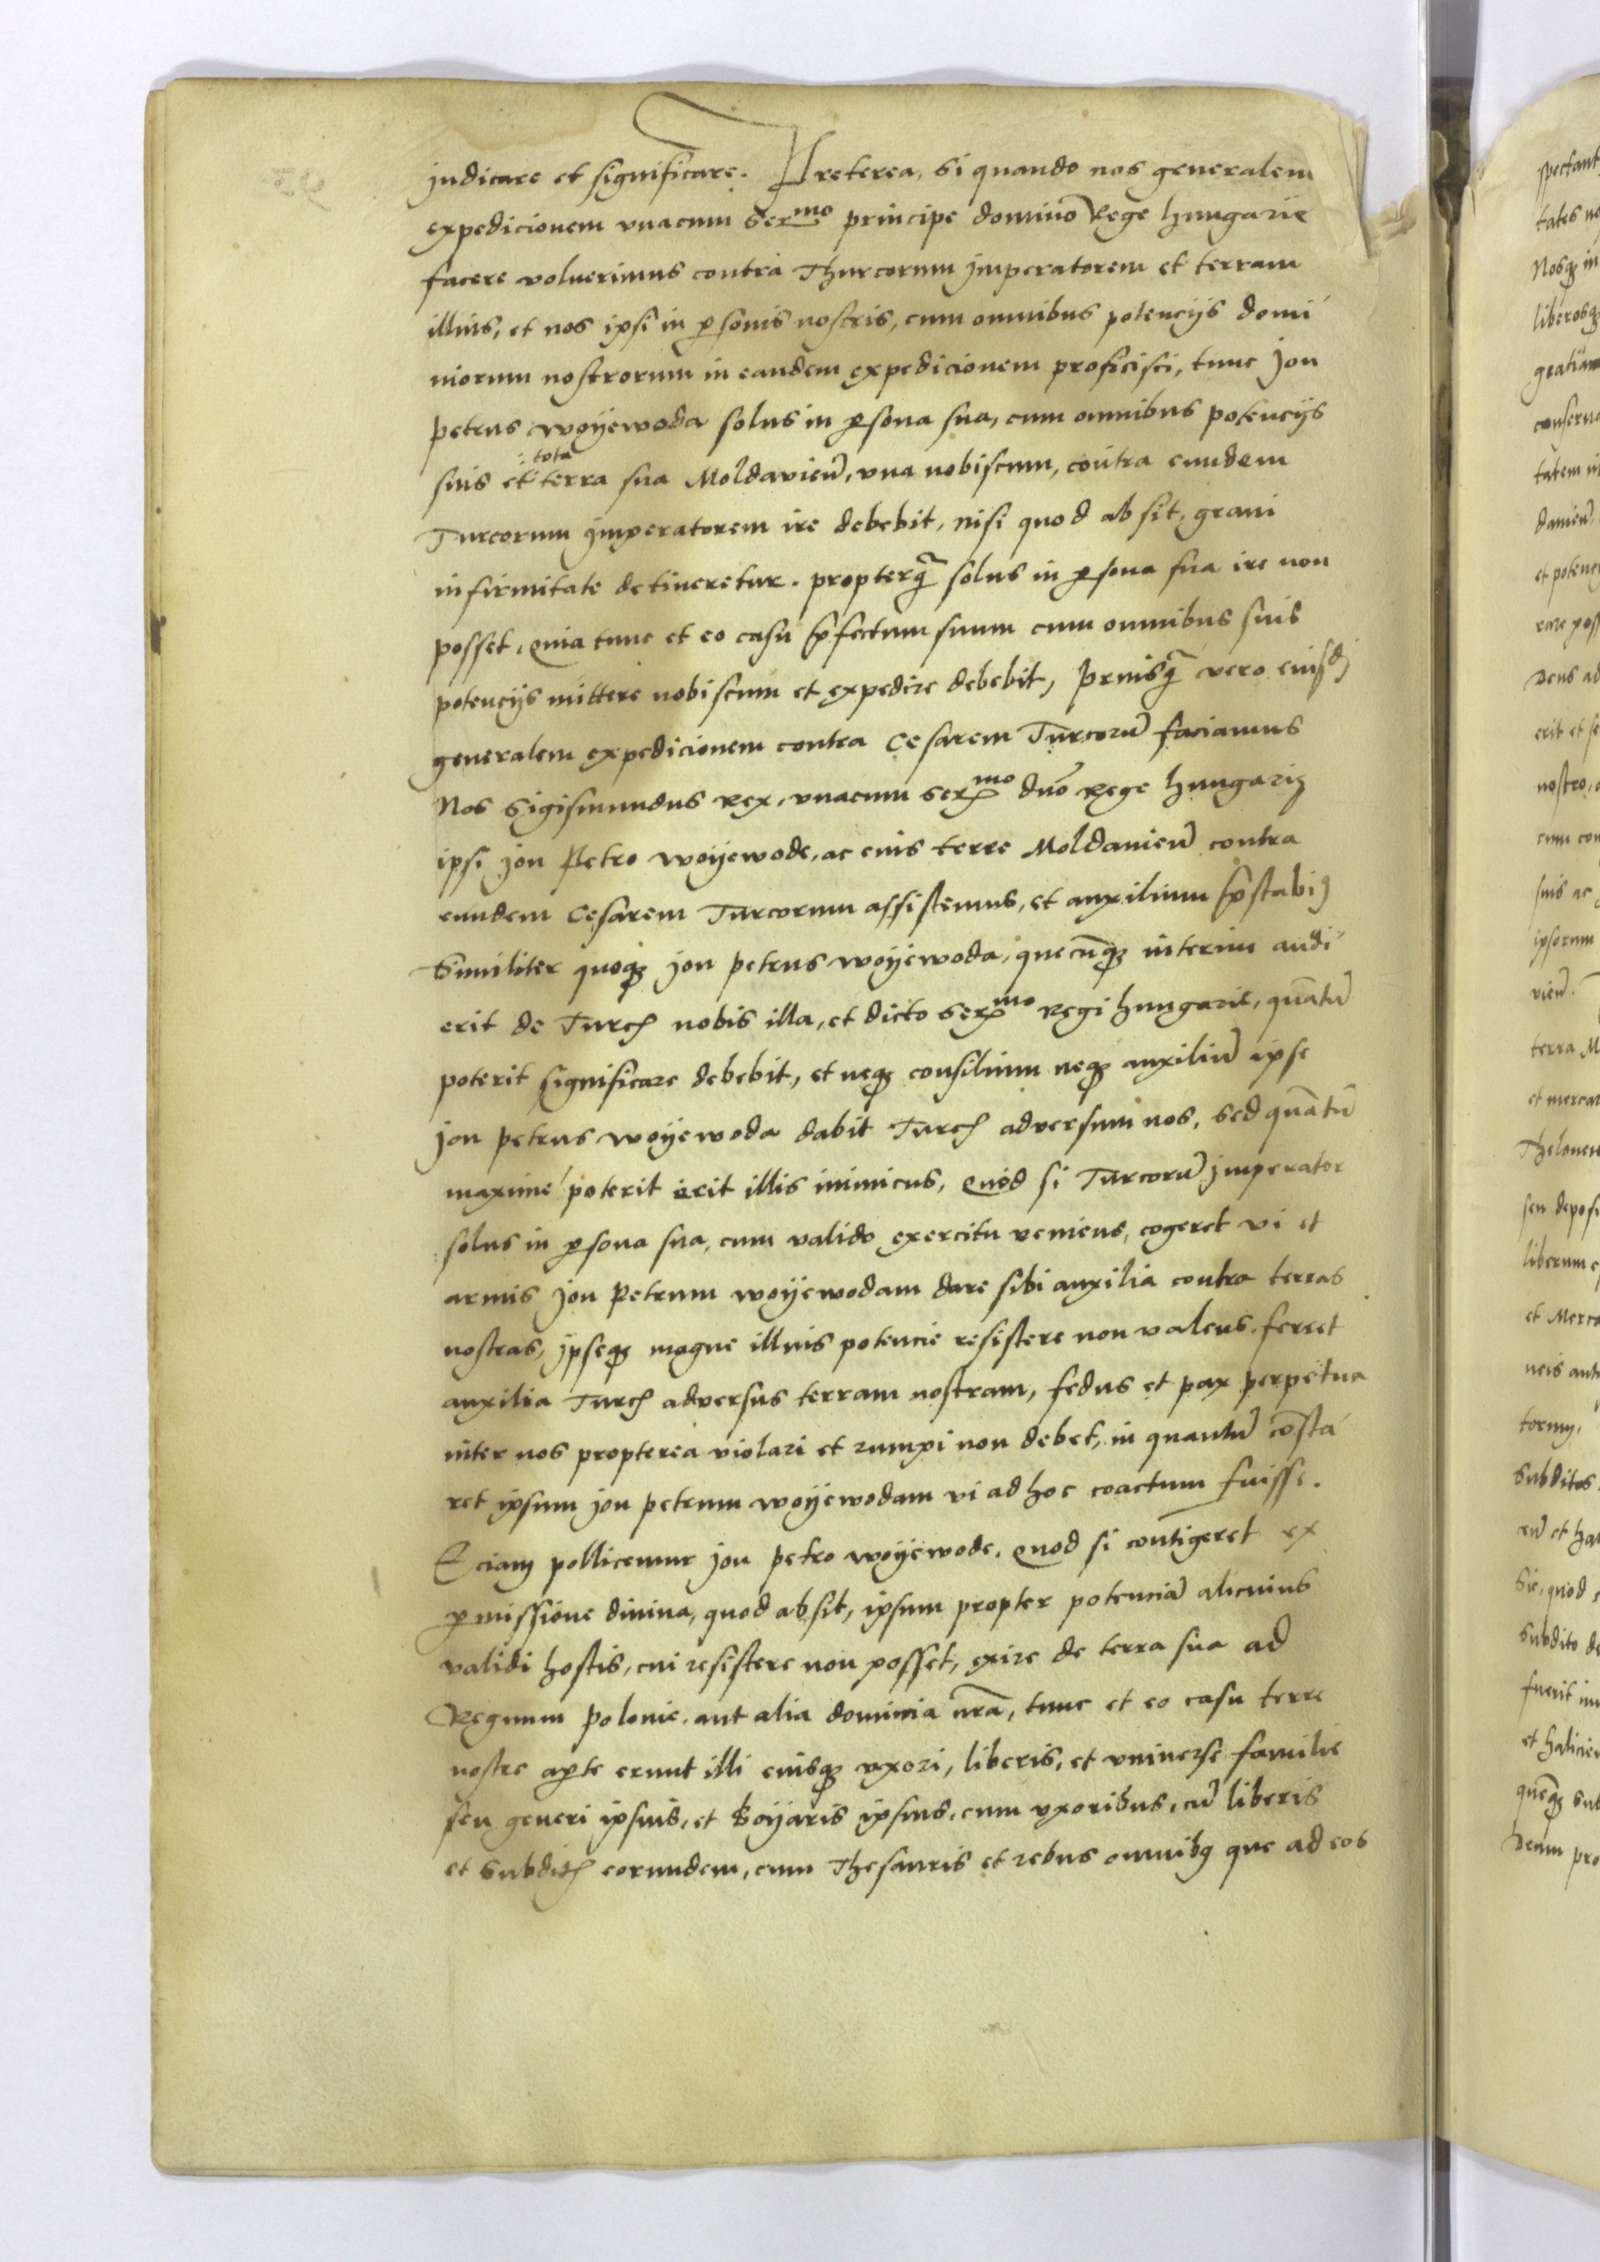 judicare et significare. Preterea, si quando nos generalem
expedicionem vnacum Ser^mo principe domino Rege hungarie
facere voluerimus contra Thurcorum jmperatorem et terram
illius, et nos ipsi in personis nostris, cum omnibus potencijs domi
niorum nostrorum in eandem expedicionem proficisci, tunc jon
petrus woyewoda solus in persona sua, cum omnibus potencijs
suis et tota terra sua Moldavien̄, vna nobiscum, contra eundem
Turcorum jmperatorem ire debebit, nisi quod absit, graui
infirmitate detineretur. propterq̄ solus in persona sua ire non
posset, Quia tunc et eo casu p̄fectum suum cum omnibus suis
potencijs mittere nobiscum et expedire debebit, Priusq̄ vero eiusd̄
generalem expedicionem contra Cesarem Turcorū faciamus
Nos Sigismundus Rex, vnacum Ser^mo dn̄o Rege hungarie
ipsi jon Petro woyewode, ac eius terre Moldauien̄ contra
eundem Cesarem Turcorum assistemus, et auxilium p̄stabim9
Similiter quoq3 jon petrus woyewoda, quecūq3 interim audi
erit de Turcis nobis illa, et dicto Ser^mo Regi hungarie, quātū
poterit significare debebit, et neq3 consilium neq3 auxiliū ipse
jon petrus woyewoda dabit Turcis adversum nos, sed quātū
maxime poterit erit illis inimicus, Quod si Turcorū jmperator
solus in persona sua, cum valido exercitu veniens, cogeret vi et
armis jon Petrum woyewodam dare sibi auxilia contra terras
nostras, jpseq3 magne illius potencie resistere non valens. ferret
auxilia Turcis adversus terram nostram, fedus et pax perpetua
inter nos propterea violari et rumpi non debet, in quantū consta
ret ipsum jon petrum woyewodam vi ad hoc coactum fuisse.
Eciam pollicemur jon petro woyewode. Quod si contigeret ex
permissione diuina, quod absit, ipsum propter potenciā alicuius
validi hostis, cui resistere non posset, exire de terra sua ad
Regnum polonie, aut alia dominia nr̄a, tunc et eo casu terre
nostre aperte erunt illi eiusq3 vxori, liberis, et vniuerse familie
seu generi ipsius, et Boyaris ipsius, cum vxoribus, cū liberis
et subditis eorundem, cum Thesauris et rebus omnib9 que ad eos